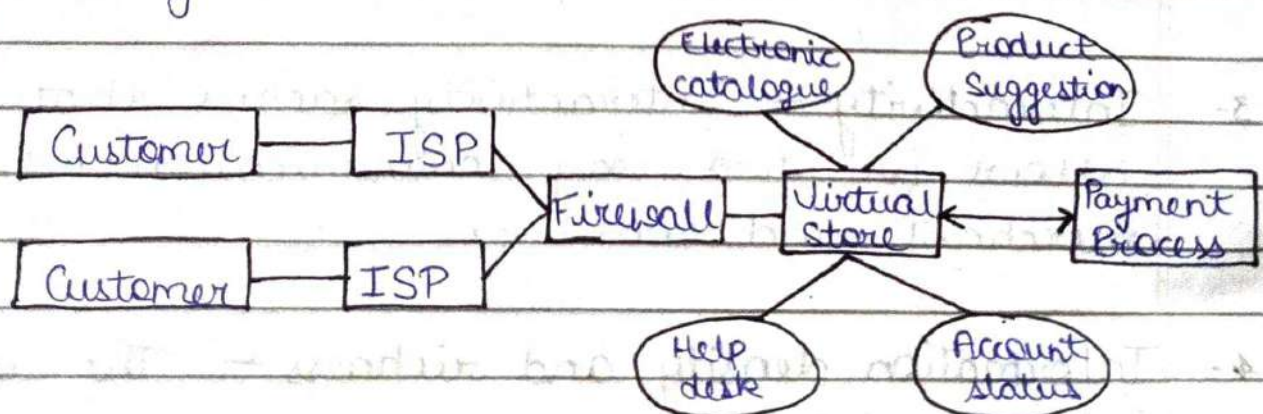 Electronic
catalogue
Product
Suggestion
Customer
ISP
Firewall
Virtual
Store
Payment
Process
Customer
ISP
Help
desk
Account
status